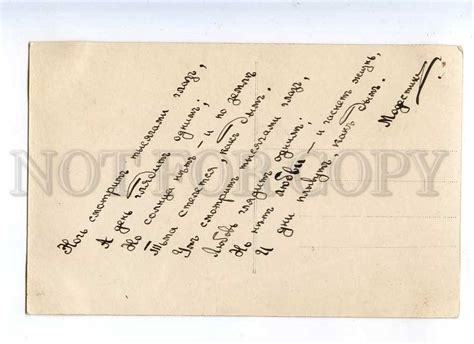 Ночь смотритъ тысячами глазъ,
А день глядитъ однимъ;
Но солнца нѣтъ – и по землѣ
Тьма стелется, какъ дымъ.
Умъ смотритъ тысячами глазъ,
Любовь глядитъ однимъ;
Но нѣтъ любви – и гаснетъ жизнь,
И дни плывутъ какъ дымъ.
NOT FOR COPY